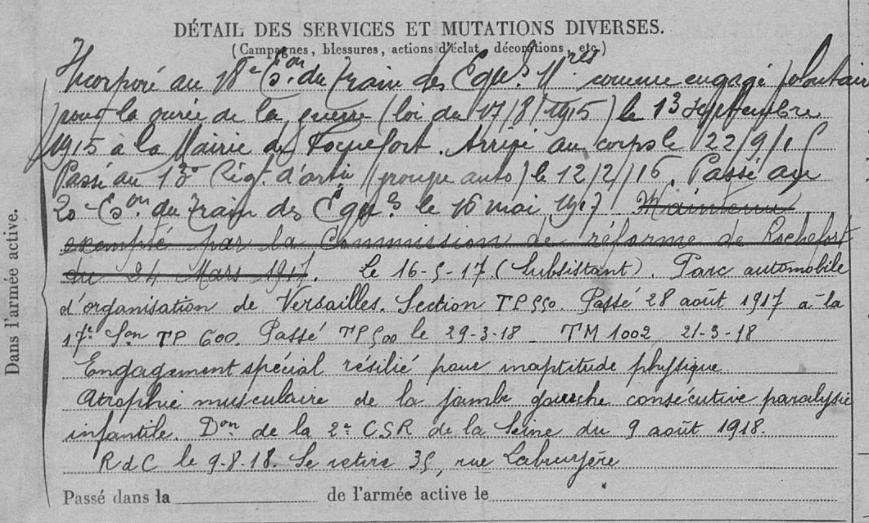 DÉTAIL DES SERVICES ET MUTATIONS DIVERSES.
(Campagnes, blessures, actions d'éclat, décorations, etc.)
Incorporé au 18e Eson du Train des Equges Mres comme engagé volontaire
pour la durée de la guerre (loi du 17/8/1915) le 13 septembre
1915 à la Mairie de Rochefort. Arrivé au corps le 22/9/15
Passé au 13e Régt. d'artie (groupe auto) le 12/2/16. Passé au
20e Eson du Train des Equges le 16 mai 1917 Maintenu
exempté par la Commission de réforme de Rochefort
du 24 Mars 1917. Le 16-5-17 (Subsistant). Parc automobile
d'organisation de Versailles. Section TP 550. Passé 28 août 1917 à la
17e Son TP 600. Passé TP 500 le 29-3-18 _ TM 1002 21-3-18
Engagement spécial résilié pour inaptitude physique
Atrophie musculaire de la jambe gauche consécutive paralysie
infantile. Don de la 2e CSR de la Seine du 9 août 1918.
RdC le 9-8-18. Se retire 35, rue Labruyère
Passé dans la de l'armée active le
Dans l'armée active.